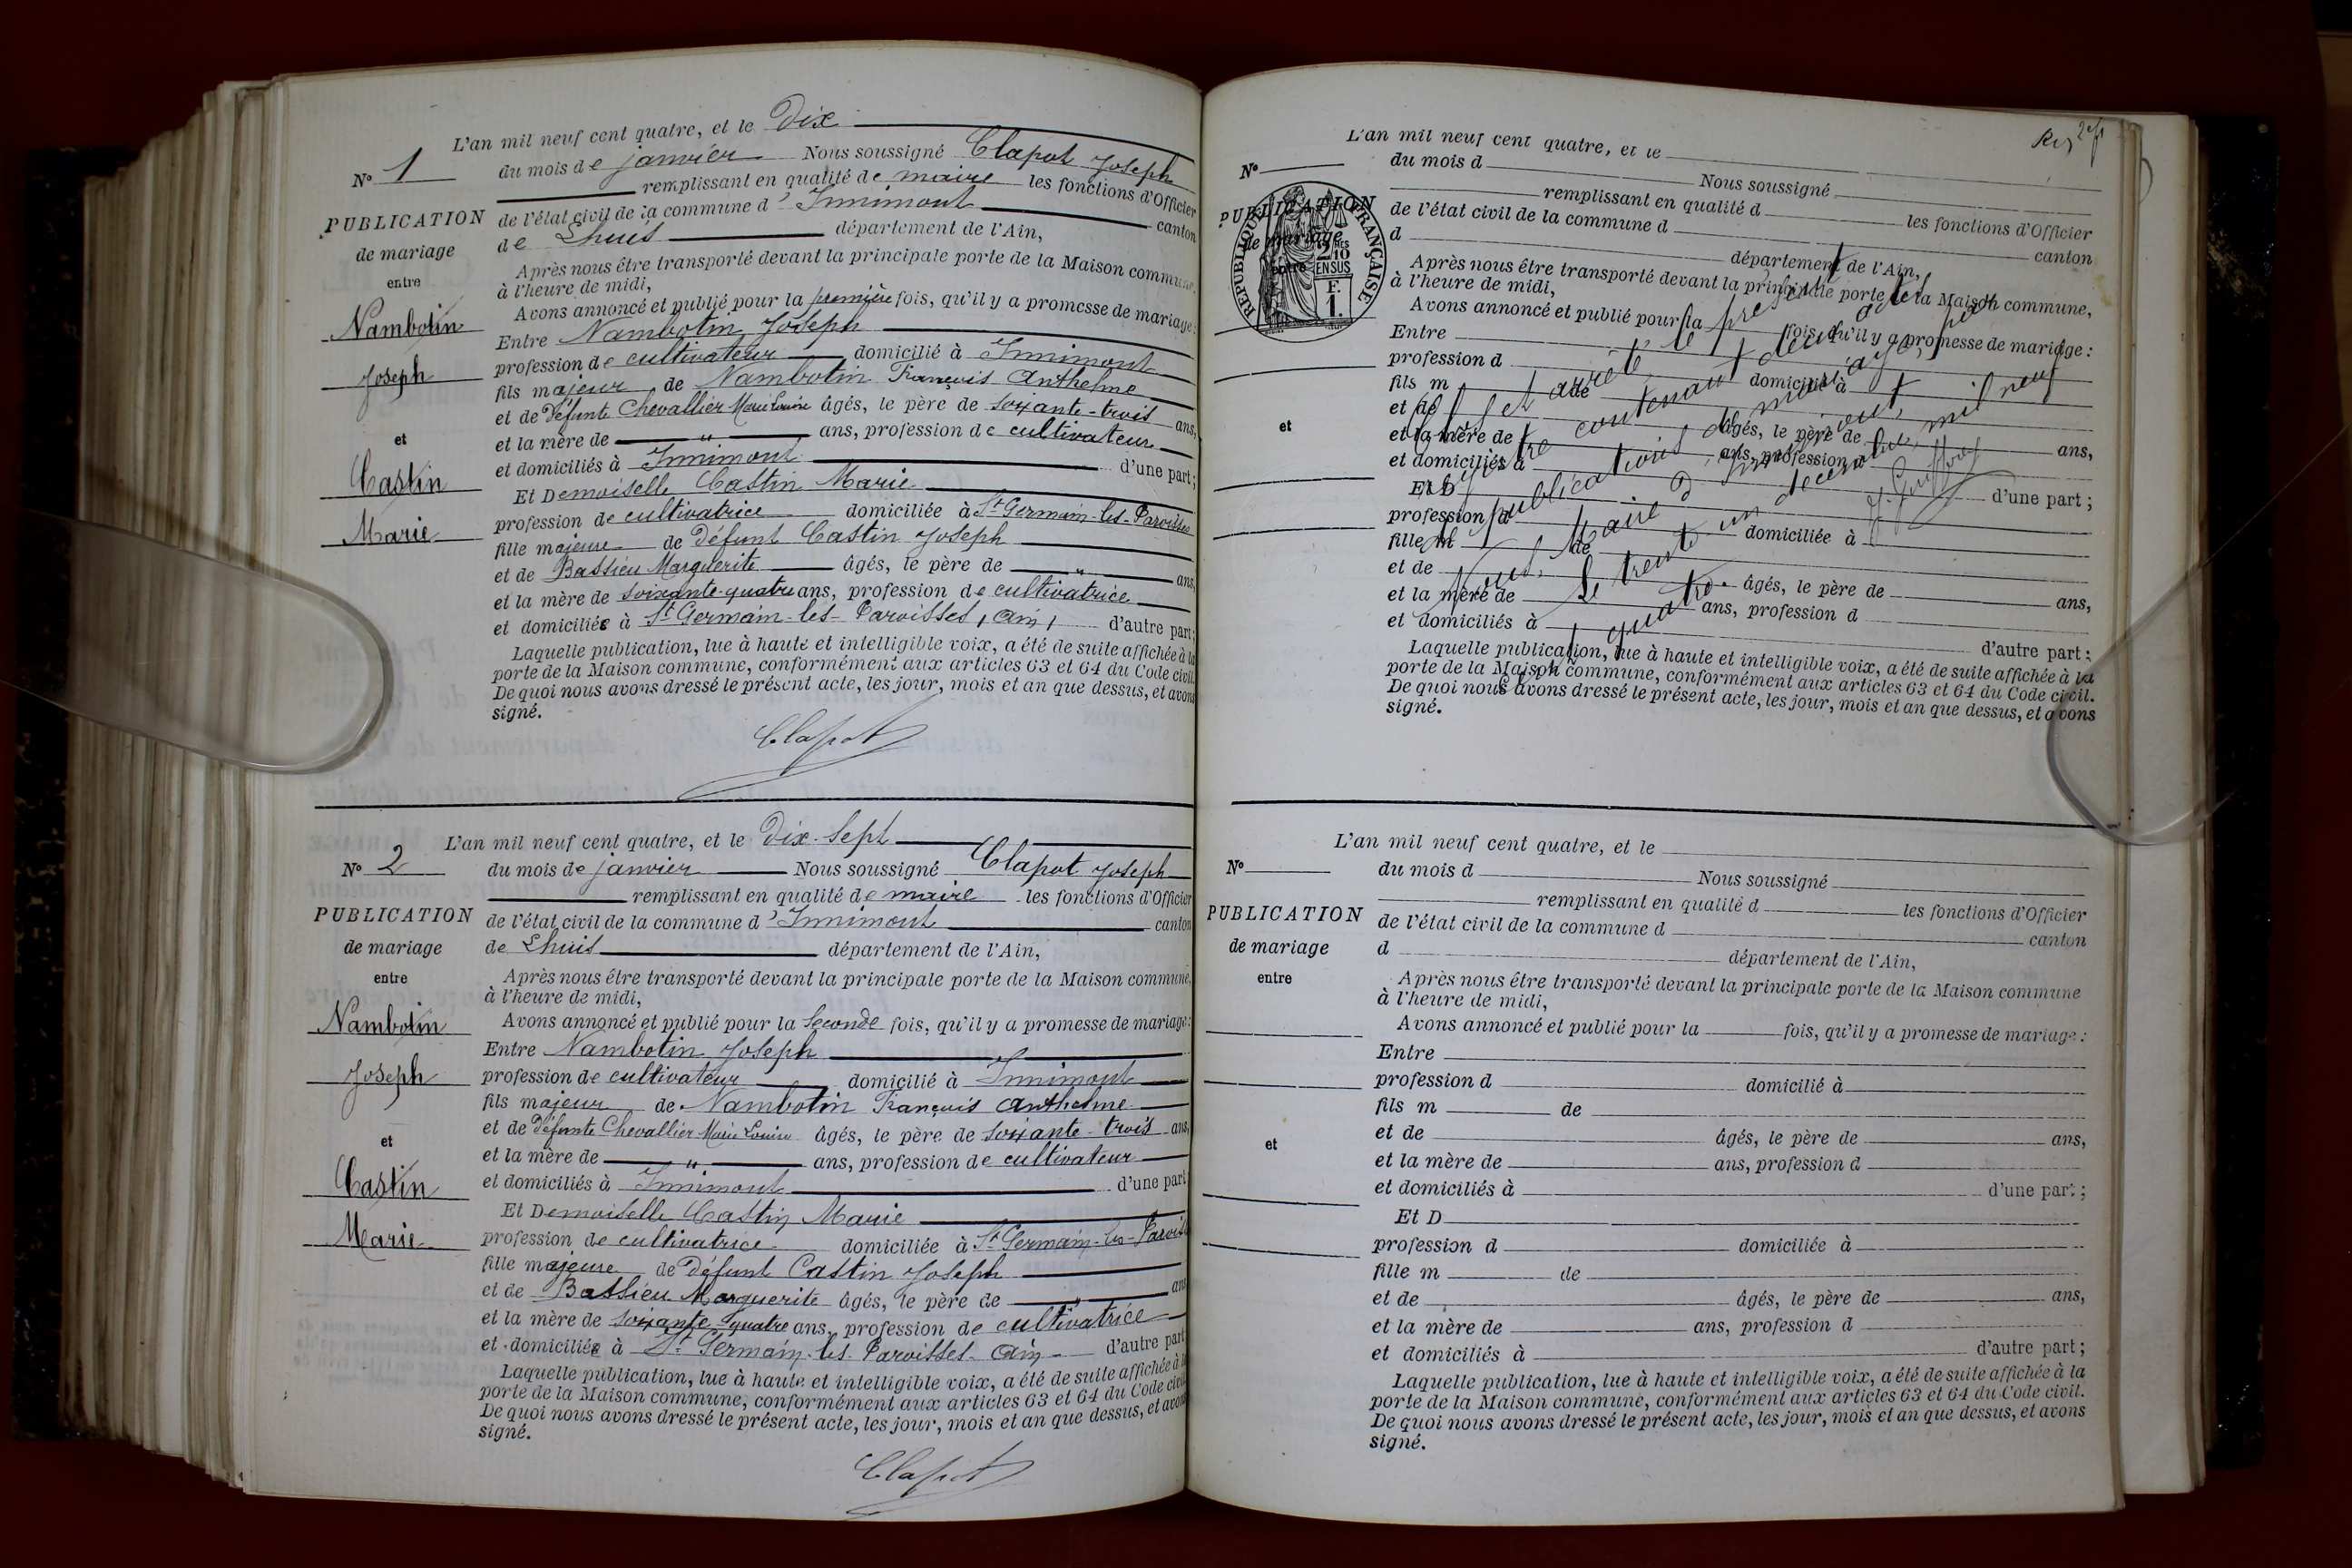 L'an mil neuf cent quatre, et le Dix
N° 1 du mois de janvier Nous soussigné Clapot Joseph
remplissant en qualité de maire les fonctions d'Officier
PUBLICATION de l'état civil de la commune d'Innimont canton
de mariage de Lhuis département de l'Ain,
entre Après nous être transporté devant la principale porte de la Maison commune,
à l'heure de midi,
Nambotin Avons annoncé et publié pour la première fois, qu'il y a promesse de mariage:
Entre Nambotin Joseph
Joseph profession de cultivateur domicilié à Innimont
fils majeur de Nambotin François Anthelme
et de défunte Chevallier Marie Louise âgés, le père de soixante-trois ans,
et et la mère de " ans, profession de cultivateur
et domiciliés à Innimont d'une part;
Castin Et Demoiselle Castin Marie
profession de cultivatrice domiciliée à St Germain-les-Paroisses
Marie fille majeure de défunt Castin Joseph
et de Bassieu Marguerite âgés, le père de " ans,
et la mère de soixante-quatre ans, profession de cultivatrice
et domiciliée à St Germain-les-Paroisses, Ain, d'autre part;
Laquelle publication, lue à haute et intelligible voix, a été de suite affichée à la
porte de la Maison commune, conformément aux articles 63 et 64 du Code civil.
De quoi nous avons dressé le présent acte, les jour, mois et an que dessus, et avons
signé.
Clapot
L'an mil neuf cent quatre, et le Dix-Sept
N° 2 du mois de janvier Nous soussigné Clapot Joseph
remplissant en qualité de maire les fonctions d'Officier
PUBLICATION de l'état civil de la commune d'Innimont canton
de mariage de Lhuis département de l'Ain,
entre Après nous être transporté devant la principale porte de la Maison commune,
à l'heure de midi,
Nambotin Avons annoncé et publié pour la seconde fois, qu'il y a promesse de mariage:
Entre Nambotin Joseph
Joseph profession de cultivateur domicilié à Innimont
fils majeur de Nambotin François Anthelme
et de défunte Chevallier Marie Louise âgés, le père de soixante-trois ans,
et et la mère de " ans, profession de cultivateur
et domiciliés à Innimont d'une part
Castin Et Demoiselle Castin Marie
Marie profession de cultivatrice domiciliée à St Germain-les-Paroisses
fille majeure de défunt Castin Joseph
et de Bassieu Marguerite âgés, le père de " ans
et la mère de soixante-quatre ans, profession de cultivatrice
et domiciliée à St Germain-les-Paroisses Ain d'autre part
Laquelle publication, lue à haute et intelligible voix, a été de suite affichée à la
porte de la Maison commune, conformément aux articles 63 et 64 du Code civil
De quoi nous avons dressé le présent acte, les jour, mois et an que dessus, et avons
signé.
Clapot
L'an mil neuf cent quatre, et le
N° du mois d Nous soussigné
remplissant en qualité d les fonctions d'Officier
PUBLICATION de l'état civil de la commune d canton
de mariage d département de l'Ain,
entre Après nous être transporté devant la principale porte de la Maison commune,
à l'heure de midi,
Avons annoncé et publié pour la fois, qu'il y a promesse de mariage:
Entre
profession d domicilié à
fils m de
et de âgés, le père de ans,
et et la mère de ans, profession d
et domiciliés à d'une part;
Et D
profession d domiciliée à
fille m de
et de âgés, le père de ans,
et la mère de ans, profession d
et domiciliés à d'autre part;
Laquelle publication, lue à haute et intelligible voix, a été de suite affichée à la
porte de la Maison commune, conformément aux articles 63 et 64 du Code civil.
De quoi nous avons dressé le présent acte, les jour, mois et an que dessus, et avons
signé.
RÉPUBLIQUE FRANÇAISE
2 MES
10
EN SUS
F.
1.
Clos et arrêté le présent
registre contenant deux actes
de publications de mariage, par
Nous, Maire d'Innimont,
Le trente un décembre, mil neuf
cent quatre.
L'an mil neuf cent quatre, et le
N° du mois d Nous soussigné
remplissant en qualité d les fonctions d'Officier
PUBLICATION de l'état civil de la commune d canton
de mariage d département de l'Ain,
entre Après nous être transporté devant la principale porte de la Maison commune
à l'heure de midi,
Avons annoncé et publié pour la fois, qu'il y a promesse de mariage:
Entre
profession d domicilié à
fils m de
et de âgés, le père de ans,
et et la mère de ans, profession d
et domiciliés à d'une part;
Et D
profession d domiciliée à
fille m de
et de âgés, le père de ans,
et la mère de ans, profession d
et domiciliés à d'autre part;
Laquelle publication, lue à haute et intelligible voix, a été de suite affichée à la
porte de la Maison commune, conformément aux articles 63 et 64 du Code civil.
De quoi nous avons dressé le présent acte, les jour, mois et an que dessus, et avons
signé.